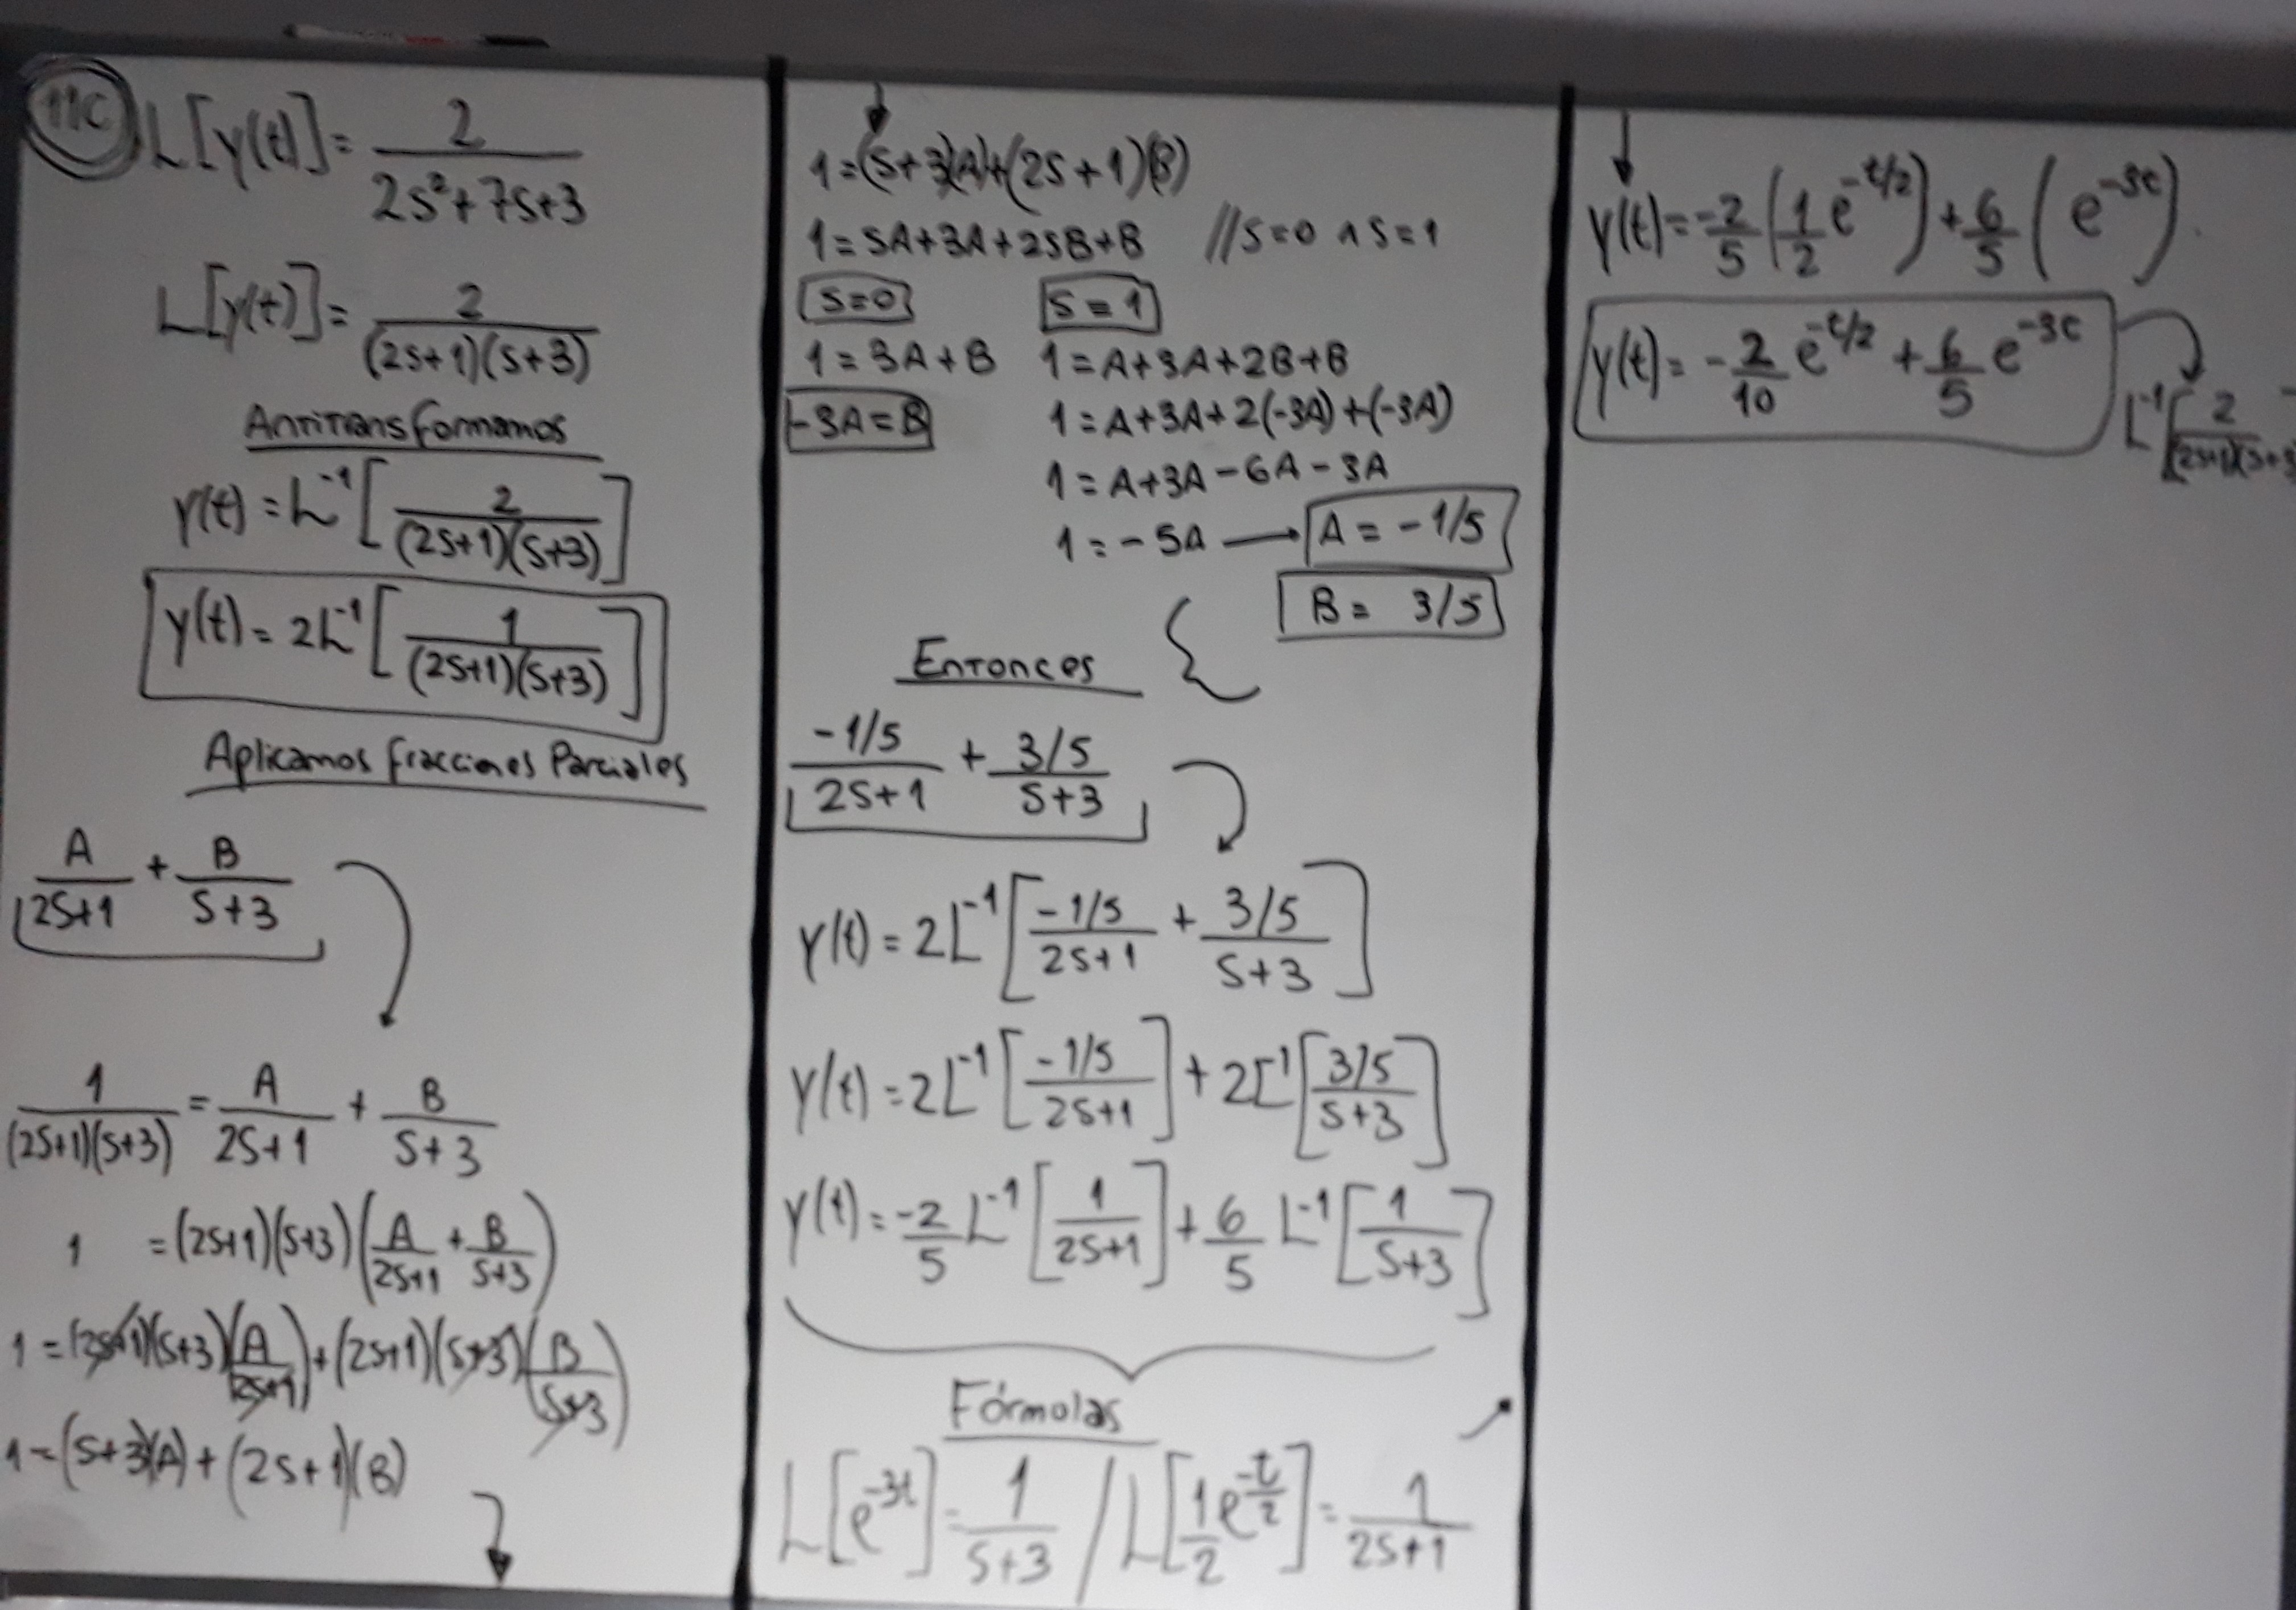 11C L[y(t)] = 2/(2s²+7s+3)
L[y(t)] = 2/((2s+1)(s+3))
Antitransformamos
y(t) = L⁻¹[2/((2s+1)(s+3))]
y(t) = 2L⁻¹[1/((2s+1)(s+3))]
Aplicamos fracciones Parciales
A/(2s+1) + B/(s+3)
1/((2s+1)(s+3)) = A/(2s+1) + B/(s+3)
1 = (2s+1)(s+3)(A/(2s+1) + B/(s+3))
1 = (2s+1)(s+3)(A/(2s+1)) + (2s+1)(s+3)(B/(s+3))
1 = (s+3)(A) + (2s+1)(B)
1 = (s+3)(A) + (2s+1)(B)
1 = SA+3A+2SB+B //S=0 ∧ S=1
S=0
1 = 3A+B
-3A=B
S=1
1 = A+3A+2B+B
1 = A+3A+2(-3A)+(-3A)
1 = A+3A-6A-3A
1 = -5A → A = -1/5
B = 3/5
Entonces
(-1/5)/(2s+1) + (3/5)/(s+3)
y(t) = 2L⁻¹[(-1/5)/(2s+1) + (3/5)/(s+3)]
y(t) = 2L⁻¹[(-1/5)/(2s+1)] + 2L⁻¹[(3/5)/(s+3)]
y(t) = -2/5 L⁻¹[1/(2s+1)] + 6/5 L⁻¹[1/(s+3)]
Fórmulas
L[e^(-3t)] = 1/(s+3) / L[1/2 e^(-t/2)] = 1/(2s+1)
y(t) = -2/5 (1/2 e^(-t/2)) + 6/5 (e^(-3t)).
y(t) = -2/10 e^(-t/2) + 6/5 e^(-3t)
L⁻¹[2/((2s+1)(s+3